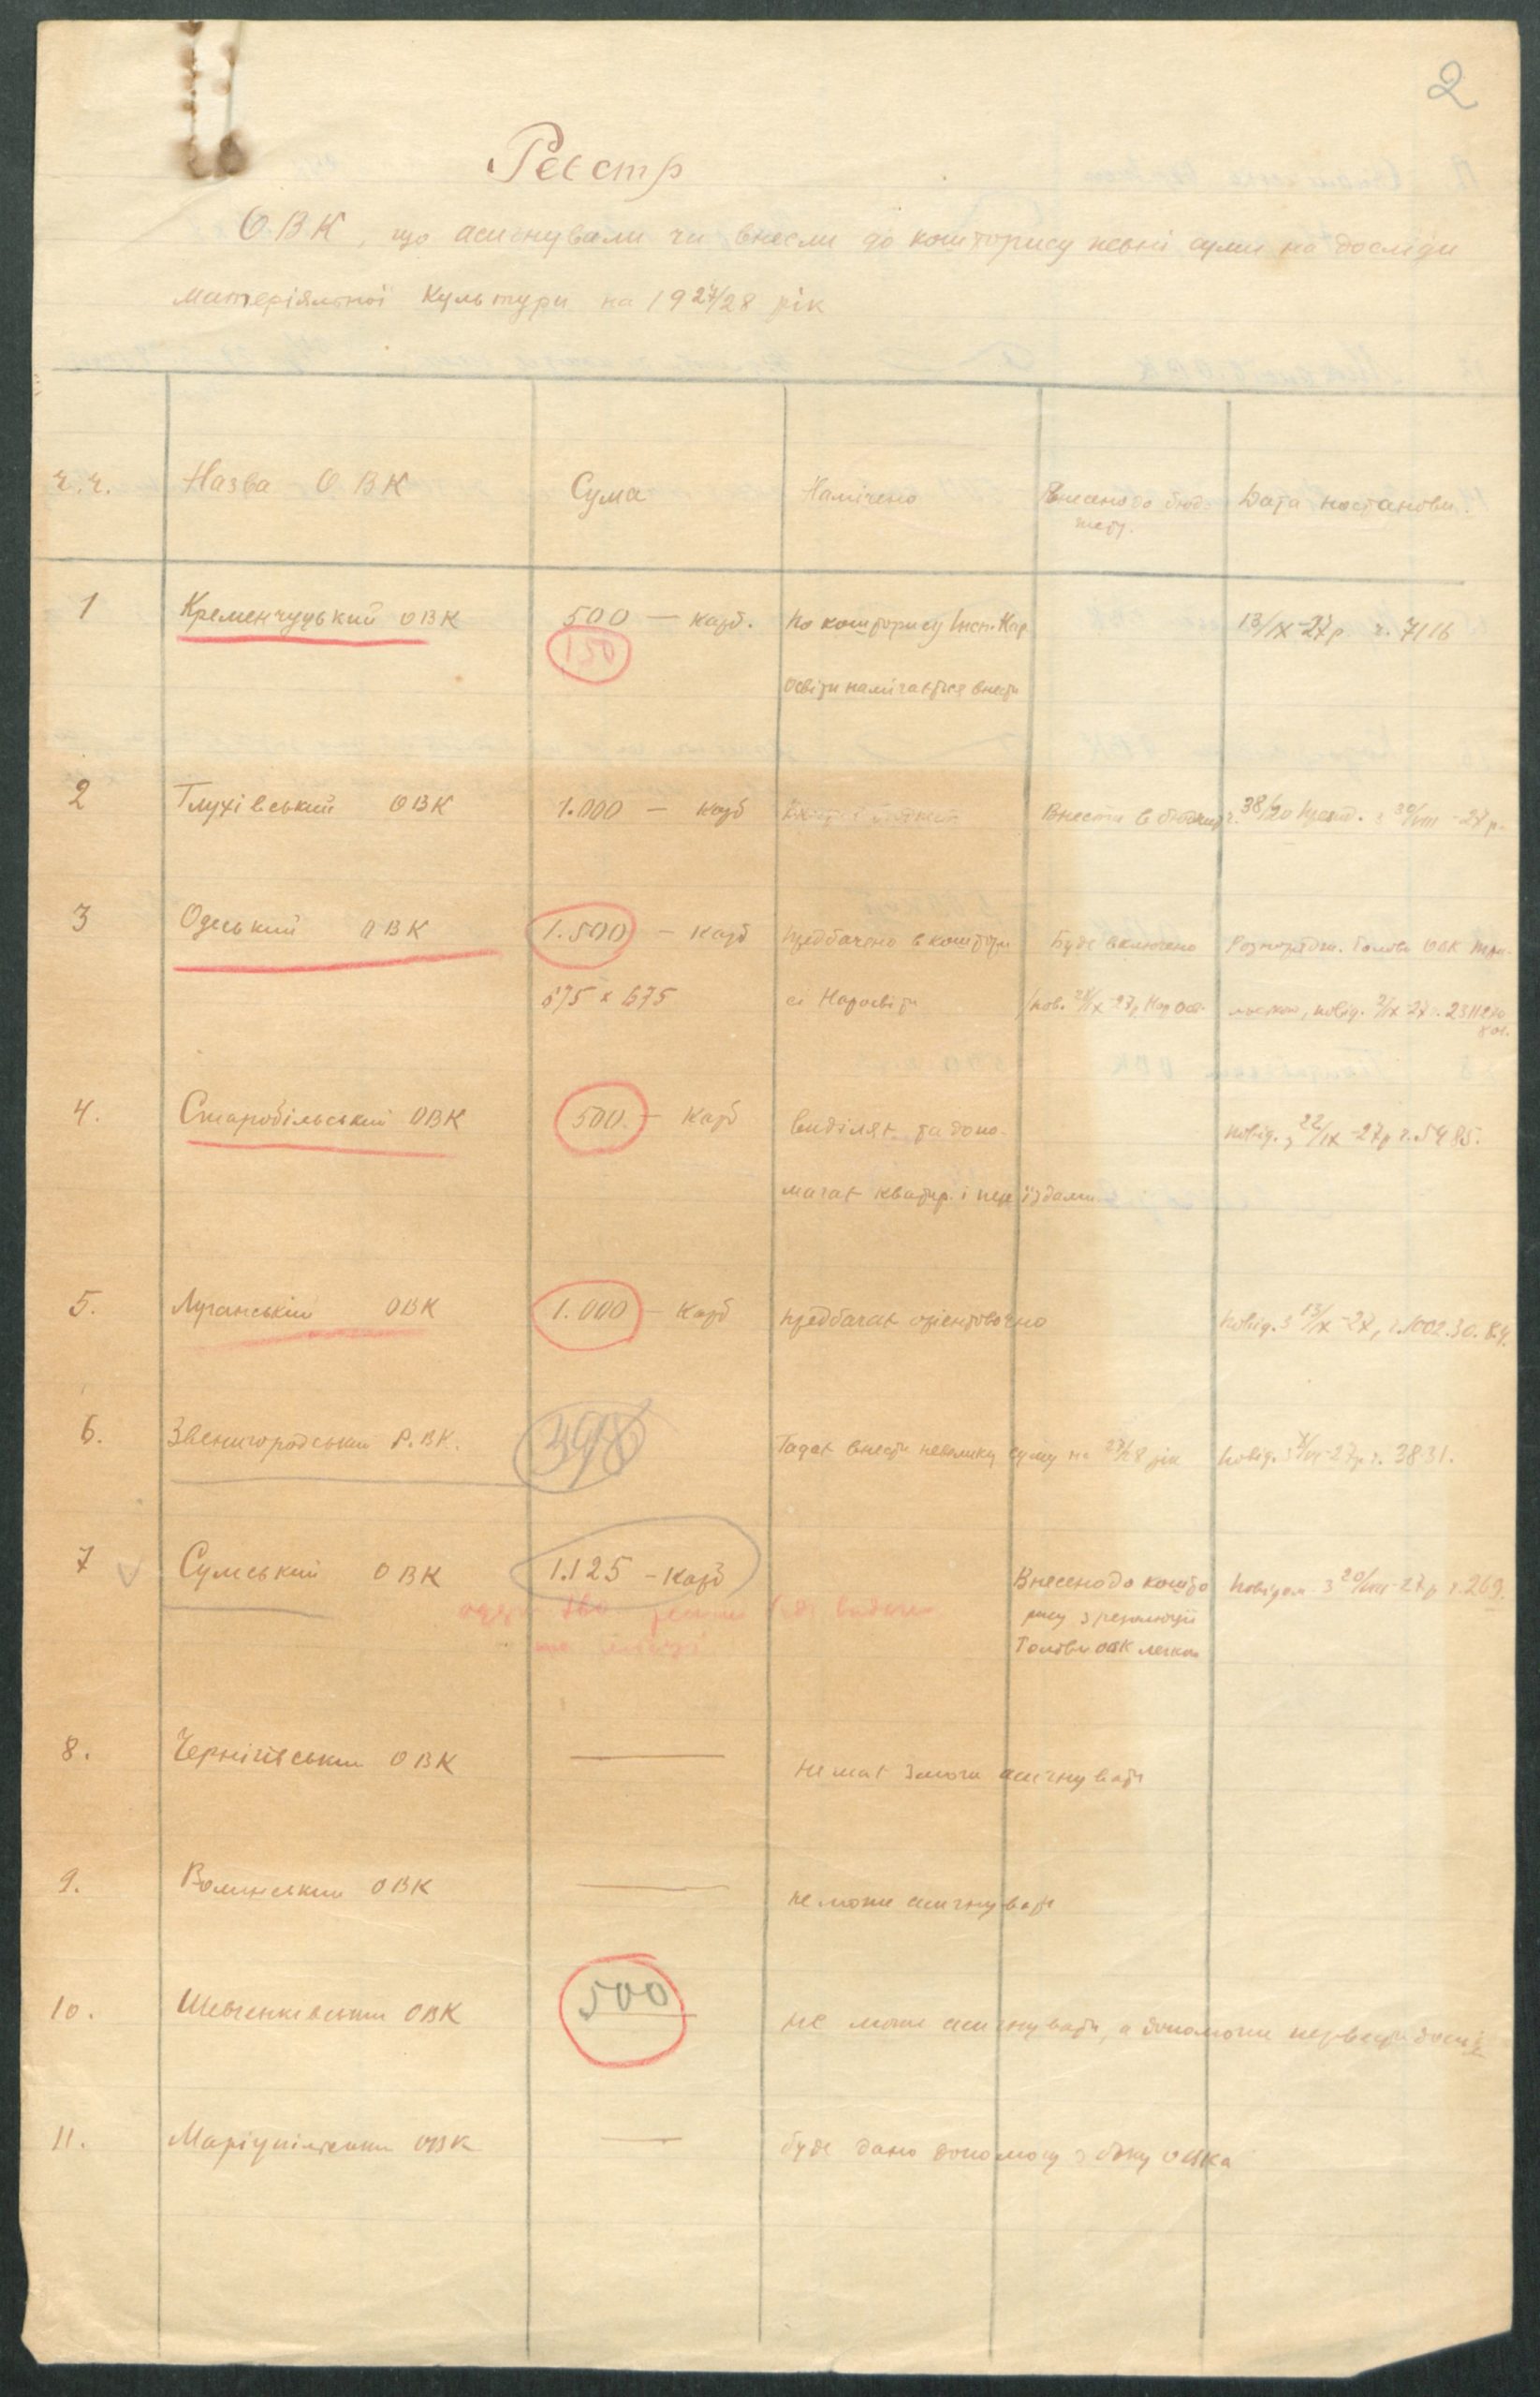 2
Реєстр
ОВК, що асигнували чи внесли до кошторису певні суми на досліди
матеріяльної культури на 1927/28 рік
ч.ч. Назва ОВК Сума Намічено Внесено до бюд- Дата постанови.
жету.
1 Кременчуцький ОВК 500 — карб. по кошторису Інсп. Нар. 13/IX-27 р. ч. 7116
150
Освіти намічається внести
2 Глухівський ОВК 1.000 — карб Внести в бюджет ч. 38/20 през. з 30/VIII-27 р.
3 Одеський ОВК 1.500 — карб передбачено в коштори- Буде включено Розпорядж. Голови ОВК
675 × 675 сі Наросвіти повід.
4. Старобільський ОВК 500 — карб виділяє та допо- повід. з 22/IX-27 р ч. 5485.
магає квартир. і переїздами.
5. Луганський ОВК 1.000 — карб передбачає орієнтовочно повід. з 13/IX-27, ч. 1002.30.
6. Звенигородський Р.ВК. Гадає внести невелику суму на 27/28 рік повід. ч. 3831.
7 Сумський ОВК 1.125 — карб Внесено до кошто- повідом. з 20/VIII-27 р ч. 269.
рису з резолюції
Голови ОВК
8. Чернігівський ОВК — не має змоги асигнувати
9. Волинський ОВК — не може асигнувати
10. Шевченківський ОВК 500 не може асигнувати, а допоможе перевести
11. Маріупільський ОВК — буде дано допомогу з боку ОВКа